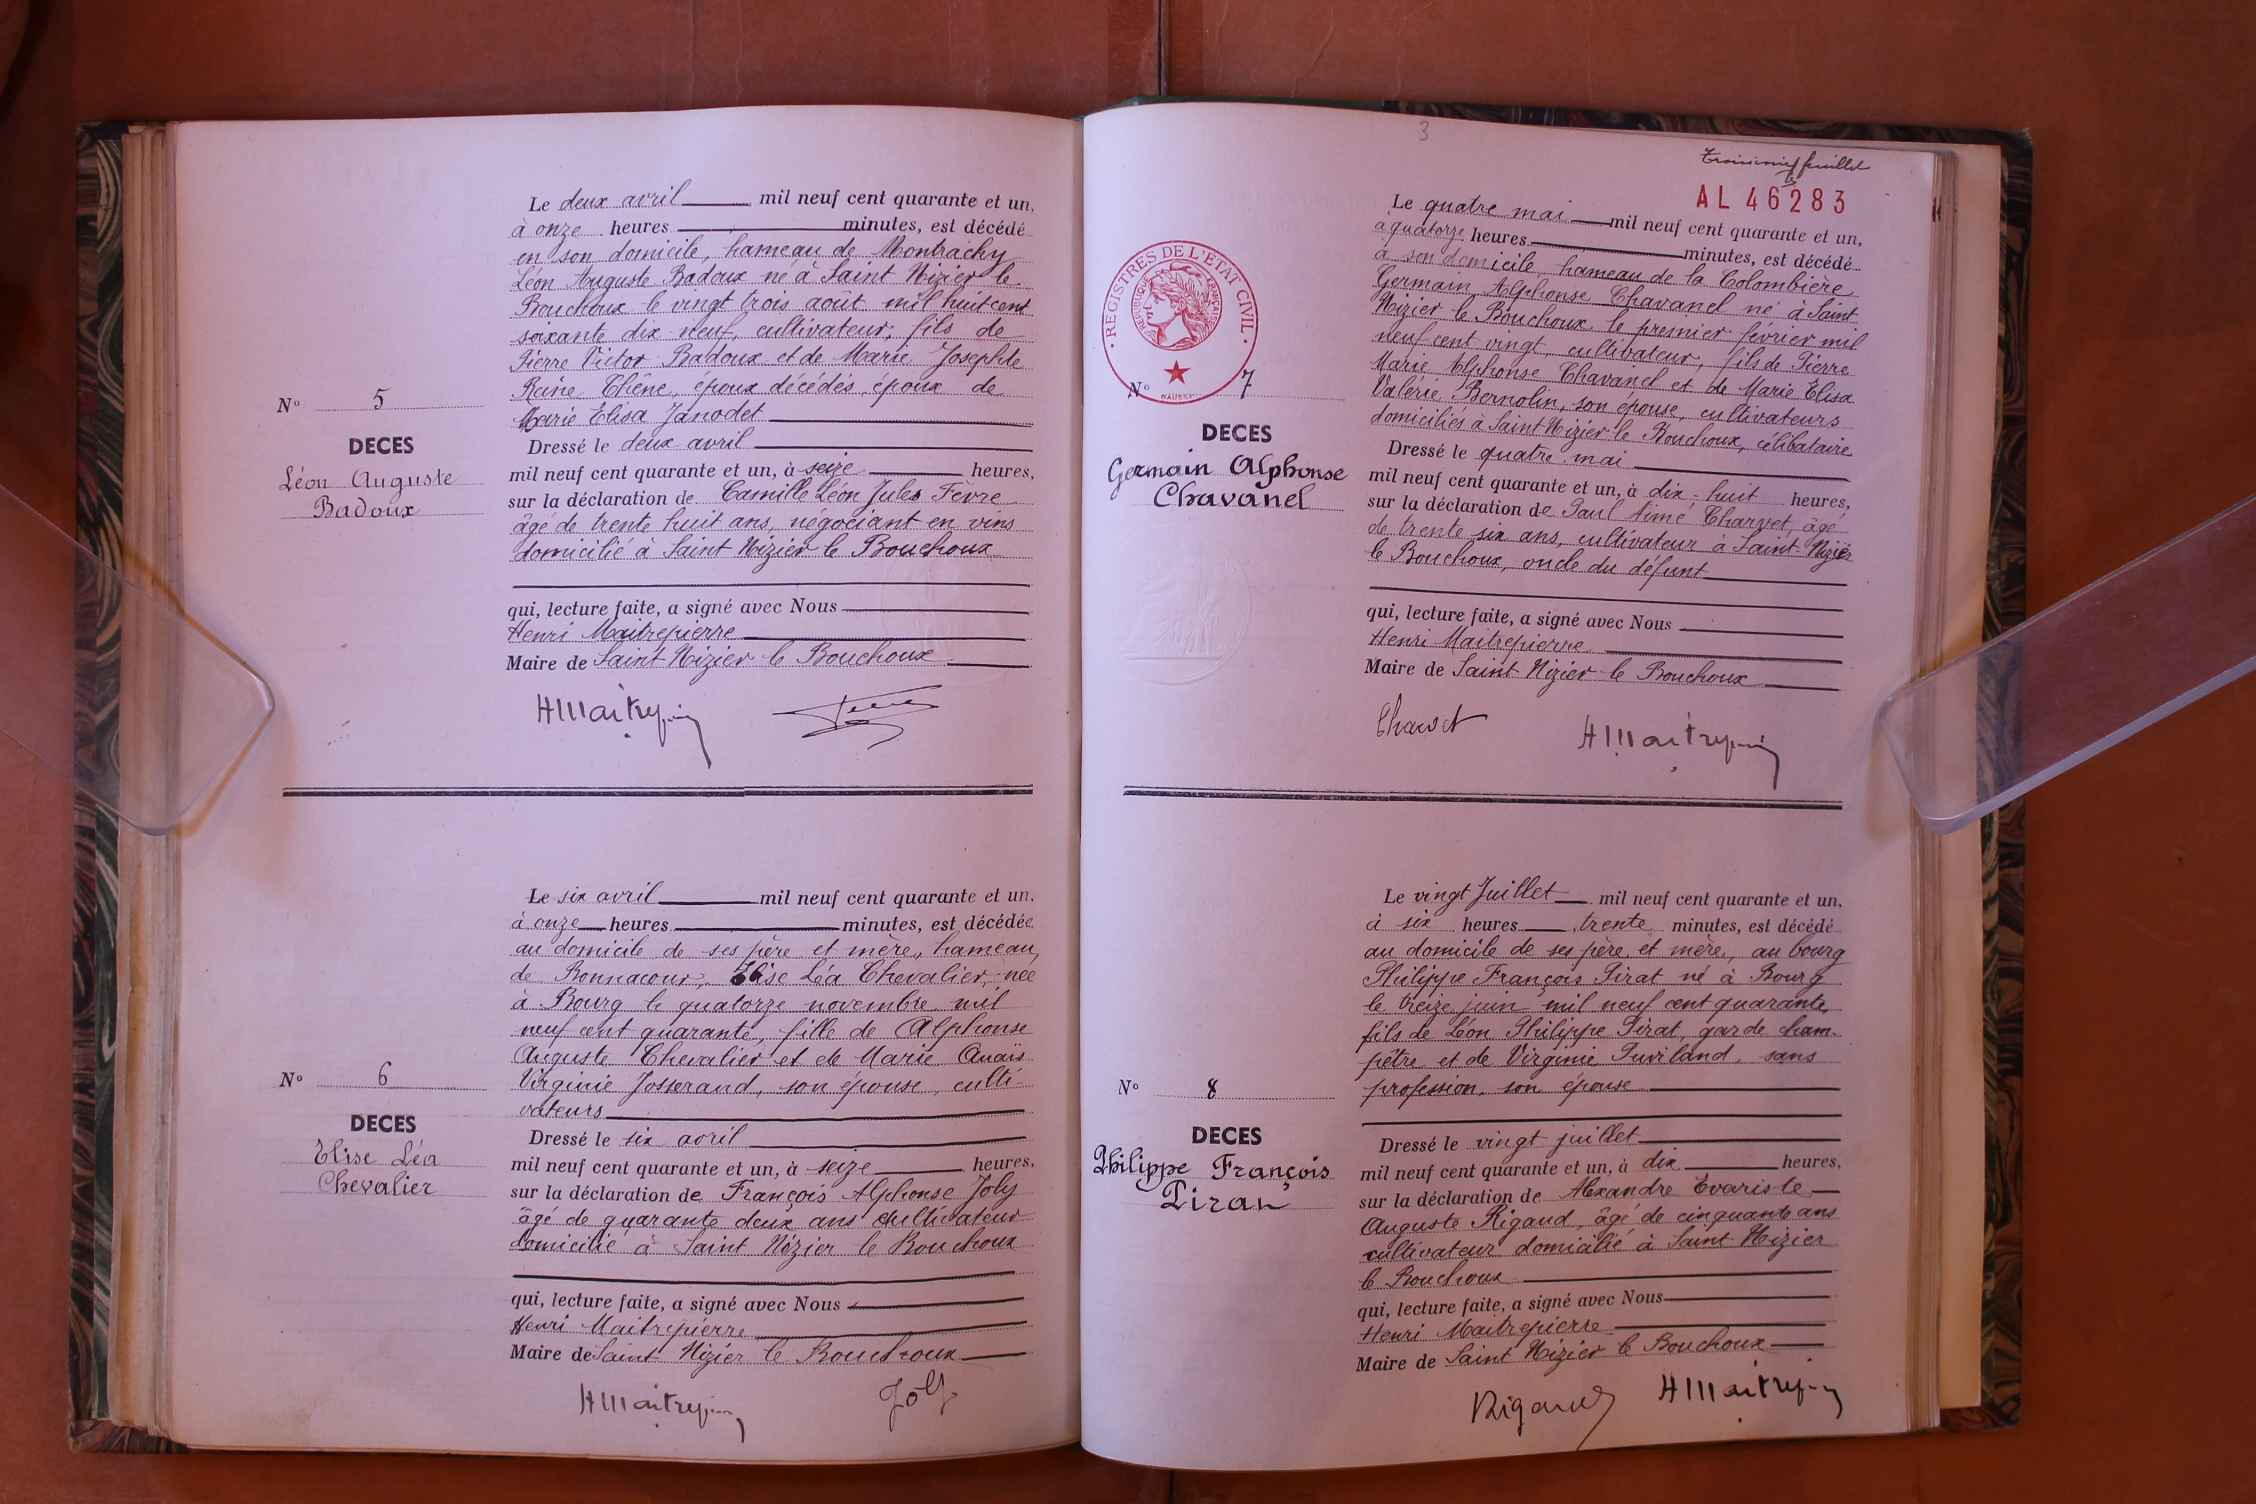 Le deux avril mil neuf cent quarante et un,
à onze heures minutes, est décédé
en son domicile, hameau de Montrachy
Léon Auguste Badoux né à Saint Nizier le
Bouchoux le vingt trois août mil huit cent
soixante dix neuf, cultivateur, fils de
Pierre Victor Badoux et de Marie Josephte
Reine Chêne, époux décédés, époux de
Marie Elisa Janodet
Nº 5
DECES
Léon Auguste
Badoux
Dressé le deux avril
mil neuf cent quarante et un, à seize heures,
sur la déclaration de Camille Léon Jules Fèvre
âgé de trente huit ans, négociant en vins
domicilié à Saint Nizier le Bouchoux
qui, lecture faite, a signé avec Nous
Henri Maitrepierre
Maire de Saint Nizier le Bouchoux
HMaitrepierre
Le six avril mil neuf cent quarante et un,
à onze heures minutes, est décédée
au domicile de ses père et mère, hameau
de Bonnacour, Elise Léa Chevalier, née
à Bourg le quatorze novembre mil
neuf cent quarante, fille de Alphonse
Auguste Chevalier et de Marie Anaïs
Virginie Josserand, son épouse, culti-
vateurs
Nº 6
DECES
Elise Léa
Chevalier
Dressé le six avril
mil neuf cent quarante et un, à seize heures,
sur la déclaration de François Alphonse Joly
âgé de quarante deux ans cultivateur
domicilié à Saint Nizier le Bouchoux
qui, lecture faite, a signé avec Nous
Henri Maitrepierre
Maire de Saint Nizier le Bouchoux
HMaitrepierre Joly
3
troisième feuillet
AL 46283
REGISTRES DE L'ETAT CIVIL
REPUBLIQUE FRANÇAISE
Le quatre mai mil neuf cent quarante et un,
à quatorze heures minutes, est décédé
à son domicile, hameau de la Colombière
Germain Alphonse Chavanel né à Saint
Nizier le Bouchoux le premier février mil
neuf cent vingt, cultivateur, fils de Pierre
Marie Alphonse Chavanel et de Marie Elisa
Valérie Bernolin, son épouse, cultivateurs
domiciliés à Saint Nizier le Bouchoux, célibataire
Nº 7
DECES
Germain Alphonse
Chavanel
Dressé le quatre mai
mil neuf cent quarante et un, à dix-huit heures,
sur la déclaration de Paul Aimé Charvet, âgé
de trente six ans, cultivateur à Saint-Nizier
le Bouchoux, oncle du défunt
qui, lecture faite, a signé avec Nous
Henri Maitrepierre
Maire de Saint Nizier le Bouchoux
Charvet HMaitrepierre
Le vingt Juillet mil neuf cent quarante et un,
à six heures trente minutes, est décédé
au domicile de ses père et mère, au bourg
Philippe François Pirat né à Bourg
le treize juin mil neuf cent quarante,
fils de Léon Philippe Pirat, garde cham-
pêtre et de Virginie Puviland, sans
profession, son épouse
Nº 8
DECES
Philippe François
Pirat
Dressé le vingt juillet
mil neuf cent quarante et un, à dix heures,
sur la déclaration de Alexandre Evariste
Auguste Rigaud, âgé de cinquante ans
cultivateur domicilié à Saint Nizier
le Bouchoux
qui, lecture faite, a signé avec Nous
Henri Maitrepierre
Maire de Saint Nizier le Bouchoux
Rigaud HMaitrepierre